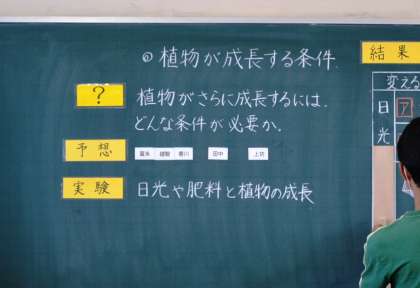 植物が成長する条件
?
植物がさらに成長するには、
どんな条件が必要か。
予想
田中
実験
日光や肥料と植物の成長
結果
変える
日光
ア